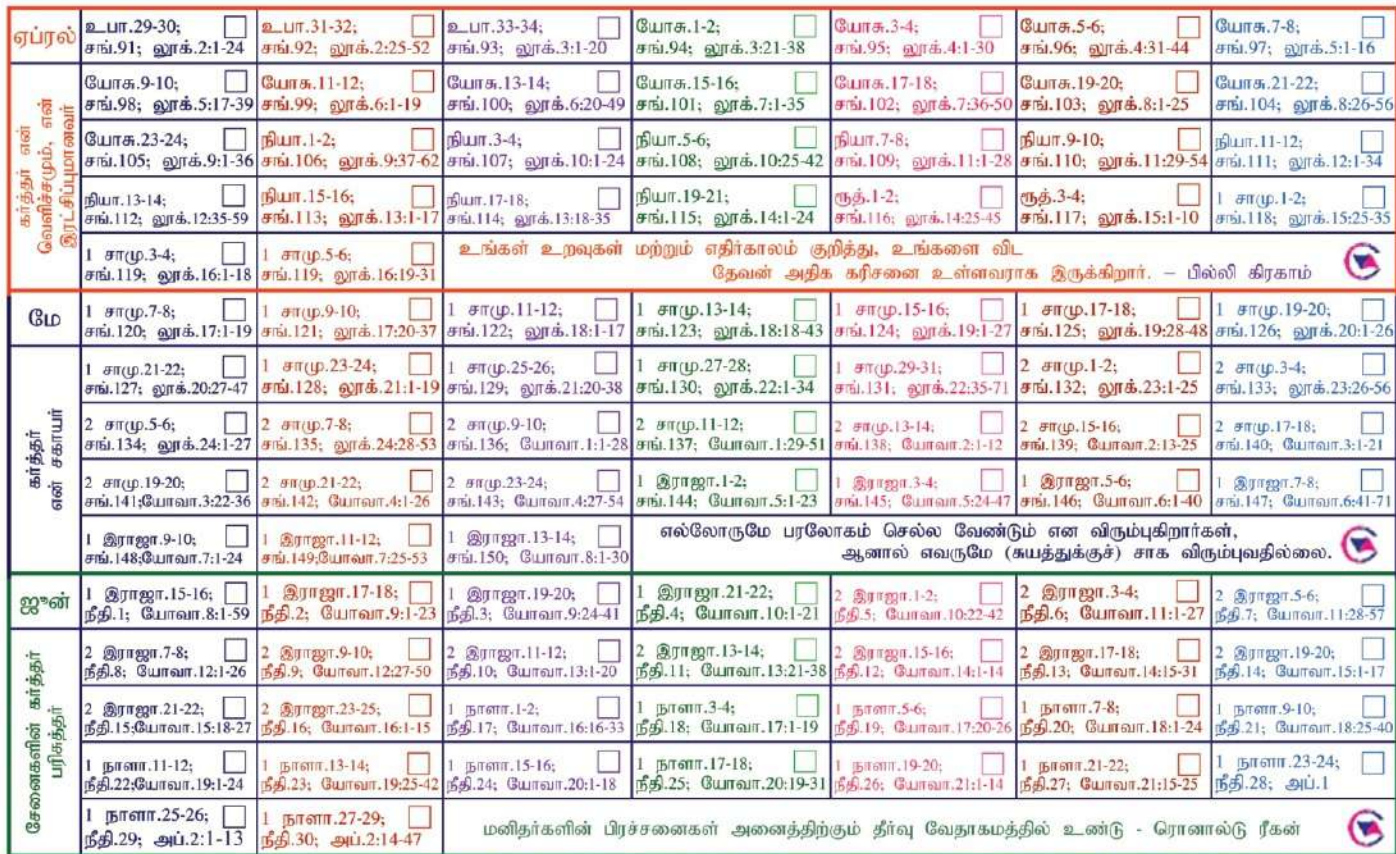 ஏப்ரல்
கர்த்தர் என்
வெளிச்சமும், என்
இரட்சிப்புமானவர்
உபா.29-30;
சங்.91; லூக்.2:1-24
உபா.31-32;
சங்.92; லூக்.2:25-52
உபா.33-34;
சங்.93; லூக்.3:1-20
யோசு.1-2;
சங்.94; லூக்.3:21-38
யோசு.3-4;
சங்.95; லூக்.4:1-30
யோசு.5-6;
சங்.96; லூக்.4:31-44
யோசு.7-8;
சங்.97; லூக்.5:1-16
யோசு.9-10;
சங்.98; லூக்.5:17-39
யோசு.11-12;
சங்.99; லூக்.6:1-19
யோசு.13-14;
சங்.100; லூக்.6:20-49
யோசு.15-16;
சங்.101; லூக்.7:1-35
யோசு.17-18;
சங்.102; லூக்.7:36-50
யோசு.19-20;
சங்.103; லூக்.8:1-25
யோசு.21-22;
சங்.104; லூக்.8:26-56
யோசு.23-24;
சங்.105; லூக்.9:1-36
நியா.1-2;
சங்.106; லூக்.9:37-62
நியா.3-4;
சங்.107; லூக்.10:1-24
நியா.5-6;
சங்.108; லூக்.10:25-42
நியா.7-8;
சங்.109; லூக்.11:1-28
நியா.9-10;
சங்.110; லூக்.11:29-54
நியா.11-12;
சங்.111; லூக்.12:1-34
நியா.13-14;
சங்.112; லூக்.12:35-59
நியா.15-16;
சங்.113; லூக்.13:1-17
நியா.17-18;
சங்.114; லூக்.13:18-35
நியா.19-21;
சங்.115; லூக்.14:1-24
ரூத்.1-2;
சங்.116; லூக்.14:25-45
ரூத்.3-4;
சங்.117; லூக்.15:1-10
1 சாமு.1-2;
சங்.118; லூக்.15:25-35
1 சாமு.3-4;
சங்.119; லூக்.16:1-18
1 சாமு.5-6;
சங்.119; லூக்.16:19-31
உங்கள் உறவுகள் மற்றும் எதிர்காலம் குறித்து, உங்களை விட
தேவன் அதிக கரிசனை உள்ளவராக இருக்கிறார். – பில்லி கிரகாம்
மே
கர்த்தர்
என் சகாயர்
1 சாமு.7-8;
சங்.120; லூக்.17:1-19
1 சாமு.9-10;
சங்.121; லூக்.17:20-37
1 சாமு.11-12;
சங்.122; லூக்.18:1-17
1 சாமு.13-14;
சங்.123; லூக்.18:18-43
1 சாமு.15-16;
சங்.124; லூக்.19:1-27
1 சாமு.17-18;
சங்.125; லூக்.19:28-48
1 சாமு.19-20;
சங்.126; லூக்.20:1-26
1 சாமு.21-22;
சங்.127; லூக்.20:27-47
1 சாமு.23-24;
சங்.128; லூக்.21:1-19
1 சாமு.25-26;
சங்.129; லூக்.21:20-38
1 சாமு.27-28;
சங்.130; லூக்.22:1-34
1 சாமு.29-31;
சங்.131; லூக்.22:35-71
2 சாமு.1-2;
சங்.132; லூக்.23:1-25
2 சாமு.3-4;
சங்.133; லூக்.23:26-56
2 சாமு.5-6;
சங்.134; லூக்.24:1-27
2 சாமு.7-8;
சங்.135; லூக்.24:28-53
2 சாமு.9-10;
சங்.136; யோவா.1:1-28
2 சாமு.11-12;
சங்.137; யோவா.1:29-51
2 சாமு.13-14;
சங்.138; யோவா.2:1-12
2 சாமு.15-16;
சங்.139; யோவா.2:13-25
2 சாமு.17-18;
சங்.140; யோவா.3:1-21
2 சாமு.19-20;
சங்.141;யோவா.3:22-36
2 சாமு.21-22;
சங்.142; யோவா.4:1-26
2 சாமு.23-24;
சங்.143; யோவா.4:27-54
1 இராஜா.1-2;
சங்.144; யோவா.5:1-23
1 இராஜா.3-4;
சங்.145; யோவா.5:24-47
1 இராஜா.5-6;
சங்.146; யோவா.6:1-40
1 இராஜா.7-8;
சங்.147; யோவா.6:41-71
1 இராஜா.9-10;
சங்.148;யோவா.7:1-24
1 இராஜா.11-12;
சங்.149;யோவா.7:25-53
1 இராஜா.13-14;
சங்.150; யோவா.8:1-30
எல்லோருமே பரலோகம் செல்ல வேண்டும் என விரும்புகிறார்கள்,
ஆனால் எவருமே (சுயத்துக்குச்) சாக விரும்புவதில்லை.
ஜூன்
சேனைகளின் கர்த்தர்
பரிசுத்தர்
1 இராஜா.15-16;
நீதி.1; யோவா.8:1-59
1 இராஜா.17-18;
நீதி.2; யோவா.9:1-23
1 இராஜா.19-20;
நீதி.3; யோவா.9:24-41
1 இராஜா.21-22;
நீதி.4; யோவா.10:1-21
2 இராஜா.1-2;
நீதி.5; யோவா.10:22-42
2 இராஜா.3-4;
நீதி.6; யோவா.11:1-27
2 இராஜா.5-6;
நீதி.7; யோவா.11:28-57
2 இராஜா.7-8;
நீதி.8; யோவா.12:1-26
2 இராஜா.9-10;
நீதி.9; யோவா.12:27-50
2 இராஜா.11-12;
நீதி.10; யோவா.13:1-20
2 இராஜா.13-14;
நீதி.11; யோவா.13:21-38
2 இராஜா.15-16;
நீதி.12; யோவா.14:1-14
2 இராஜா.17-18;
நீதி.13; யோவா.14:15-31
2 இராஜா.19-20;
நீதி.14; யோவா.15:1-17
2 இராஜா.21-22;
நீதி.15;யோவா.15:18-27
2 இராஜா.23-25;
நீதி.16; யோவா.16:1-15
1 நாளா.1-2;
நீதி.17; யோவா.16:16-33
1 நாளா.3-4;
நீதி.18; யோவா.17:1-19
1 நாளா.5-6;
நீதி.19; யோவா.17:20-26
1 நாளா.7-8;
நீதி.20; யோவா.18:1-24
1 நாளா.9-10;
நீதி.21; யோவா.18:25-40
1 நாளா.11-12;
நீதி.22;யோவா.19:1-24
1 நாளா.13-14;
நீதி.23; யோவா.19:25-42
1 நாளா.15-16;
நீதி.24; யோவா.20:1-18
1 நாளா.17-18;
நீதி.25; யோவா.20:19-31
1 நாளா.19-20;
நீதி.26; யோவா.21:1-14
1 நாளா.21-22;
நீதி.27; யோவா.21:15-25
1 நாளா.23-24;
நீதி.28; அப்.1
1 நாளா.25-26;
நீதி.29; அப்.2:1-13
1 நாளா.27-29;
நீதி.30; அப்.2:14-47
மனிதர்களின் பிரச்சனைகள் அனைத்திற்கும் தீர்வு வேதாகமத்தில் உண்டு - ரொனால்டு ரீகன்